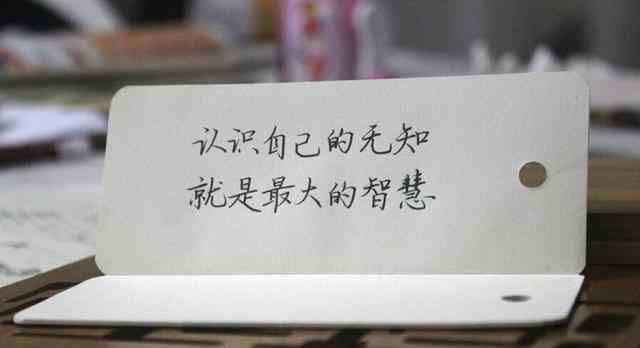 认识自己的无知
就是最大的智慧